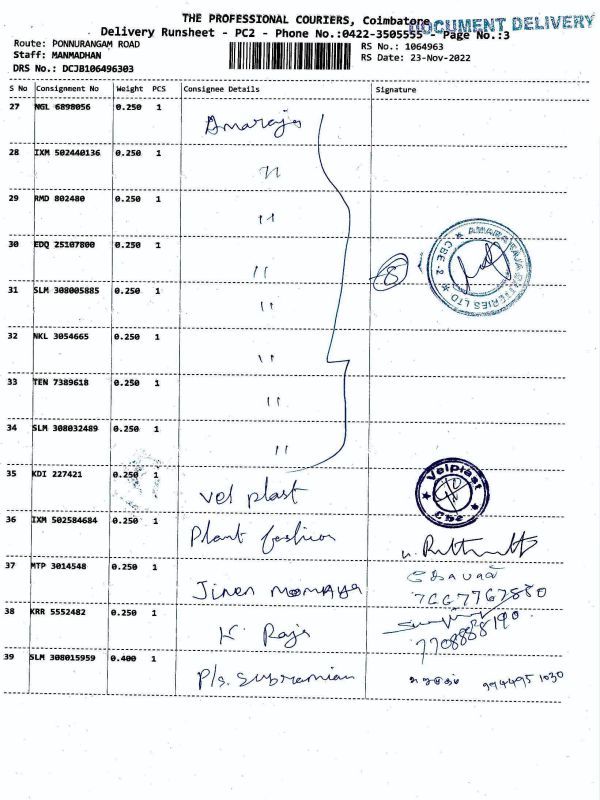 THE PROFESSIONAL COURIERS, Coimbatore
DOCUMENT DELIVERY
Delivery Runsheet - PC2 - Phone No.:0422-3505555 - Page No.:3
Route: PONNURANGAM ROAD
RS No.: 1064963
Staff: MANMADHAN
RS Date: 23-Nov-2022
DRS No.: DCJB106496303
S No Consignment No Weight PCS Consignee Details Signature
27 NGL 6898056 0.250 1 Amaraja
28 IXM 502440136 0.250 1 "
29 RMD 802480 0.250 1 "
30 EDQ 25107800 0.250 1 "
8
AMARA RAJA BATTERIES LTD ★ CBE-2 ★
31 SLM 308005885 0.250 1 "
32 NKL 3054665 0.250 1 "
33 TEN 7389618 0.250 1 "
34 SLM 308032489 0.250 1 "
35 KDI 227421 0.250 1 vel plast
Velplast ★ Cbe ★
36 IXM 502584684 0.250 1 Plant fashion
37 MTP 3014548 0.250 1 Jinen momaya
38 KRR 5552482 0.250 1 K. Raja
7708888190
39 SLM 308015959 0.400 1 P/s. Subramian
994495 1030